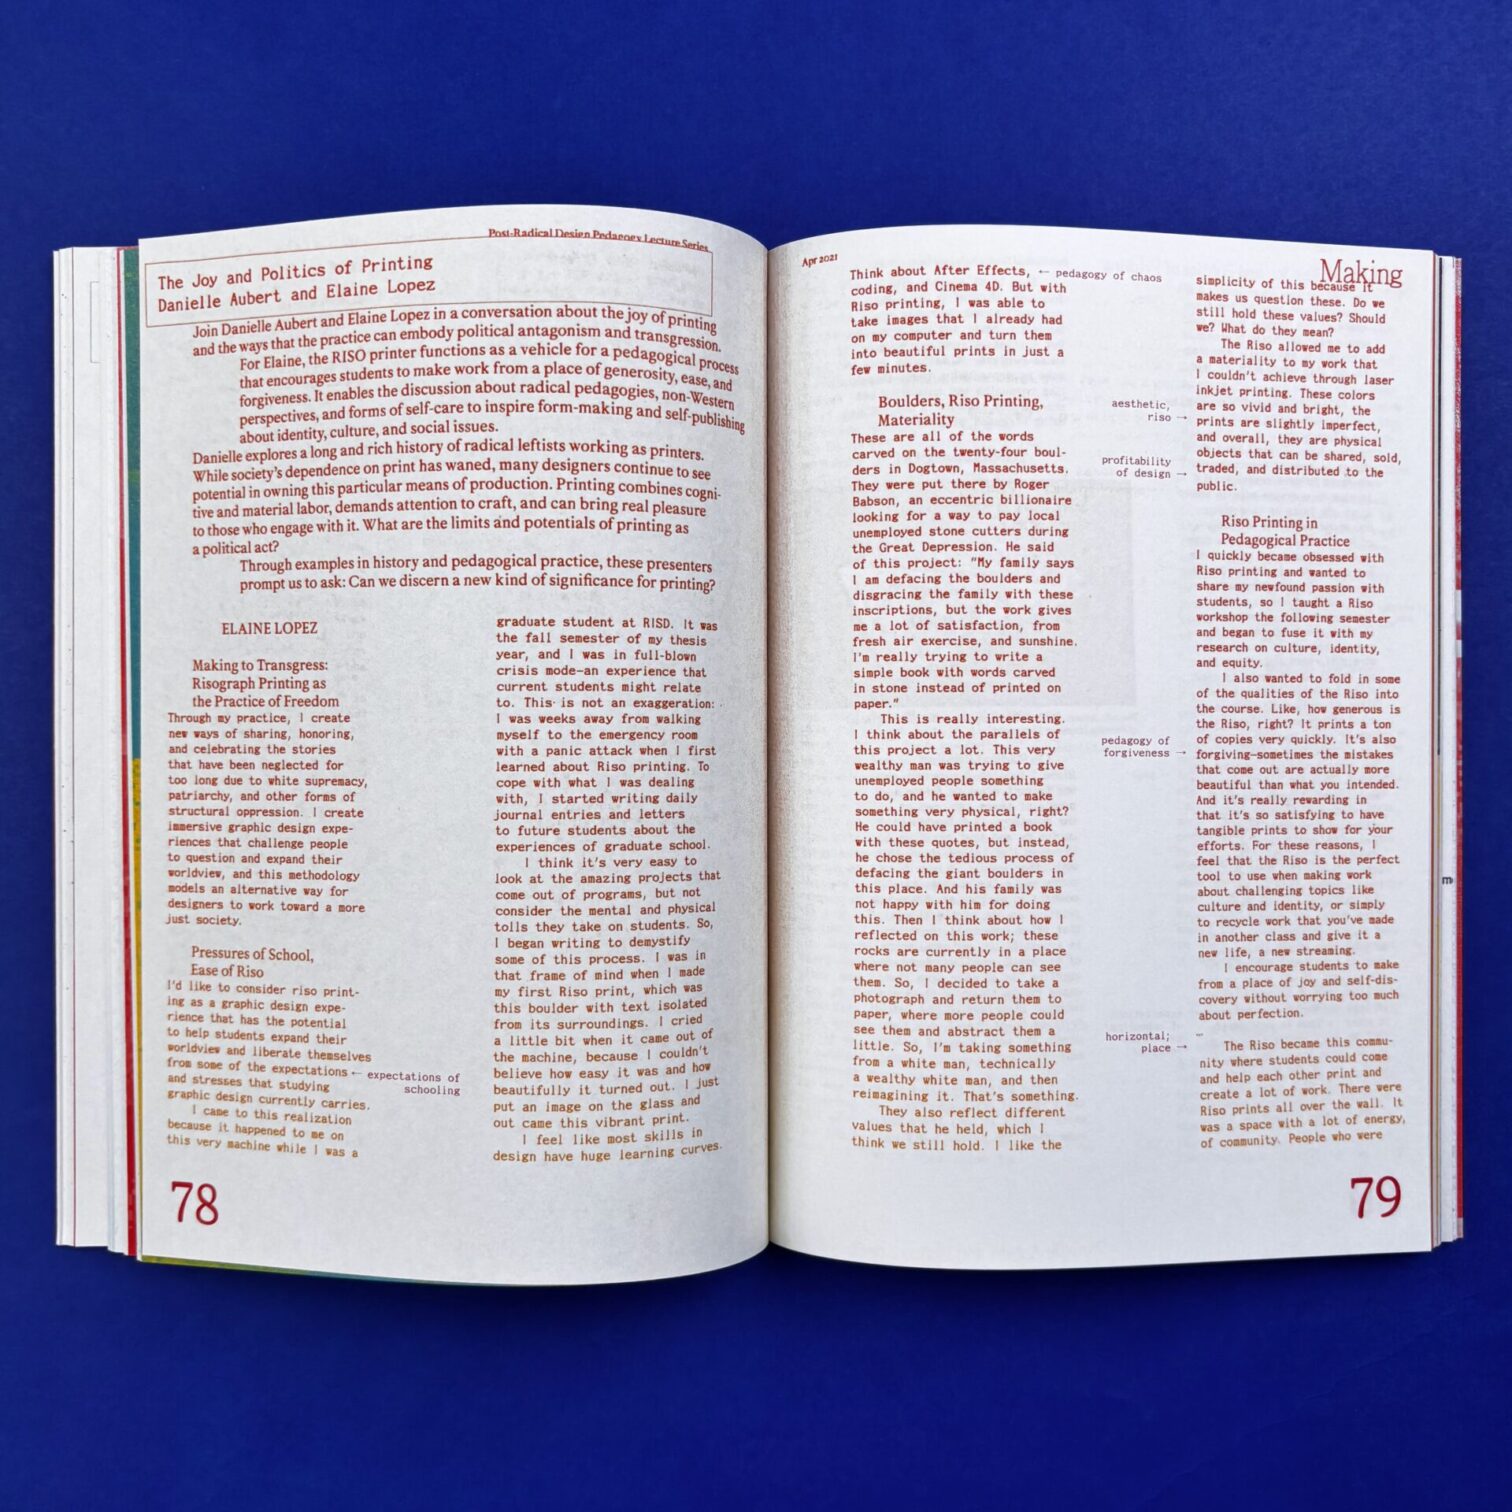 Post-Radical Design Pedagogy Lecture Series
The Joy and Politics of Printing
Danielle Aubert and Elaine Lopez
Join Danielle Aubert and Elaine Lopez in a conversation about the joy of printing
and the ways that the practice can embody political antagonism and transgression.
For Elaine, the RISO printer functions as a vehicle for a pedagogical process
that encourages students to make work from a place of generosity, ease, and
forgiveness. It enables the discussion about radical pedagogies, non-Western
perspectives, and forms of self-care to inspire form-making and self-publishing
about identity, culture, and social issues.
Danielle explores a long and rich history of radical leftists working as printers.
While society's dependence on print has waned, many designers continue to see
potential in owning this particular means of production. Printing combines cogni-
tive and material labor, demands attention to craft, and can bring real pleasure
to those who engage with it. What are the limits and potentials of printing as
a political act?
Through examples in history and pedagogical practice, these presenters
prompt us to ask: Can we discern a new kind of significance for printing?
ELAINE LOPEZ
Making to Transgress:
Risograph Printing as
the Practice of Freedom
Through my practice, I create
new ways of sharing, honoring,
and celebrating the stories
that have been neglected for
too long due to white supremacy,
patriarchy, and other forms of
structural oppression. I create
immersive graphic design expe-
riences that challenge people
to question and expand their
worldview, and this methodology
models an alternative way for
designers to work toward a more
just society.
Pressures of School,
Ease of Riso
I'd like to consider riso print-
ing as a graphic design expe-
rience that has the potential
to help students expand their
worldview and liberate themselves
from some of the expectations ← expectations of
schooling
and stresses that studying
graphic design currently carries.
I came to this realization
because it happened to me on
this very machine while I was a
graduate student at RISD. It was
the fall semester of my thesis
year, and I was in full-blown
crisis mode—an experience that
current students might relate
to. This is not an exaggeration:
I was weeks away from walking
myself to the emergency room
with a panic attack when I first
learned about Riso printing. To
cope with what I was dealing
with, I started writing daily
journal entries and letters
to future students about the
experiences of graduate school.
I think it's very easy to
look at the amazing projects that
come out of programs, but not
consider the mental and physical
tolls they take on students. So,
I began writing to demystify
some of this process. I was in
that frame of mind when I made
my first Riso print, which was
this boulder with text isolated
from its surroundings. I cried
a little bit when it came out of
the machine, because I couldn't
believe how easy it was and how
beautifully it turned out. I just
put an image on the glass and
out came this vibrant print.
I feel like most skills in
design have huge learning curves.
78
Apr 2021
Making
Think about After Effects, ← pedagogy of chaos
coding, and Cinema 4D. But with
Riso printing, I was able to
take images that I already had
on my computer and turn them
into beautiful prints in just a
few minutes.
Boulders, Riso Printing,
Materiality
These are all of the words
carved on the twenty-four boul-
ders in Dogtown, Massachusetts.
They were put there by Roger
Babson, an eccentric billionaire
looking for a way to pay local
unemployed stone cutters during
the Great Depression. He said
of this project: "My family says
I am defacing the boulders and
disgracing the family with these
inscriptions, but the work gives
me a lot of satisfaction, from
fresh air exercise, and sunshine.
I'm really trying to write a
simple book with words carved
in stone instead of printed on
paper."
This is really interesting.
I think about the parallels of
this project a lot. This very
wealthy man was trying to give
unemployed people something
to do, and he wanted to make
something very physical, right?
He could have printed a book
with these quotes, but instead,
he chose the tedious process of
defacing the giant boulders in
this place. And his family was
not happy with him for doing
this. Then I think about how I
reflected on this work; these
rocks are currently in a place
where not many people can see
them. So, I decided to take a
photograph and return them to
paper, where more people could
see them and abstract them a
little. So, I'm taking something
from a white man, technically
a wealthy white man, and then
reimagining it. That's something.
They also reflect different
values that he held, which I
think we still hold. I like the
simplicity of this because it
makes us question these. Do we
still hold these values? Should
we? What do they mean?
The Riso allowed me to add
a materiality to my work that
I couldn't achieve through laser
inkjet printing. These colors
aesthetic,
riso →
are so vivid and bright, the
prints are slightly imperfect,
and overall, they are physical
profitability
of design →
objects that can be shared, sold,
traded, and distributed to the
public.
Riso Printing in
Pedagogical Practice
I quickly became obsessed with
Riso printing and wanted to
share my newfound passion with
students, so I taught a Riso
workshop the following semester
and began to fuse it with my
research on culture, identity,
and equity.
I also wanted to fold in some
of the qualities of the Riso into
the course. Like, how generous is
the Riso, right? It prints a ton
of copies very quickly. It's also
pedagogy of
forgiveness →
forgiving—sometimes the mistakes
that come out are actually more
beautiful than what you intended.
And it's really rewarding in
that it's so satisfying to have
tangible prints to show for your
efforts. For these reasons, I
feel that the Riso is the perfect
tool to use when making work
about challenging topics like
culture and identity, or simply
to recycle work that you've made
in another class and give it a
new life, a new streaming.
I encourage students to make
from a place of joy and self-dis-
covery without worrying too much
about perfection.
…
horizontal;
place →
The Riso became this commu-
nity where students could come
and help each other print and
create a lot of work. There were
Riso prints all over the wall. It
was a space with a lot of energy,
of community. People who were
79